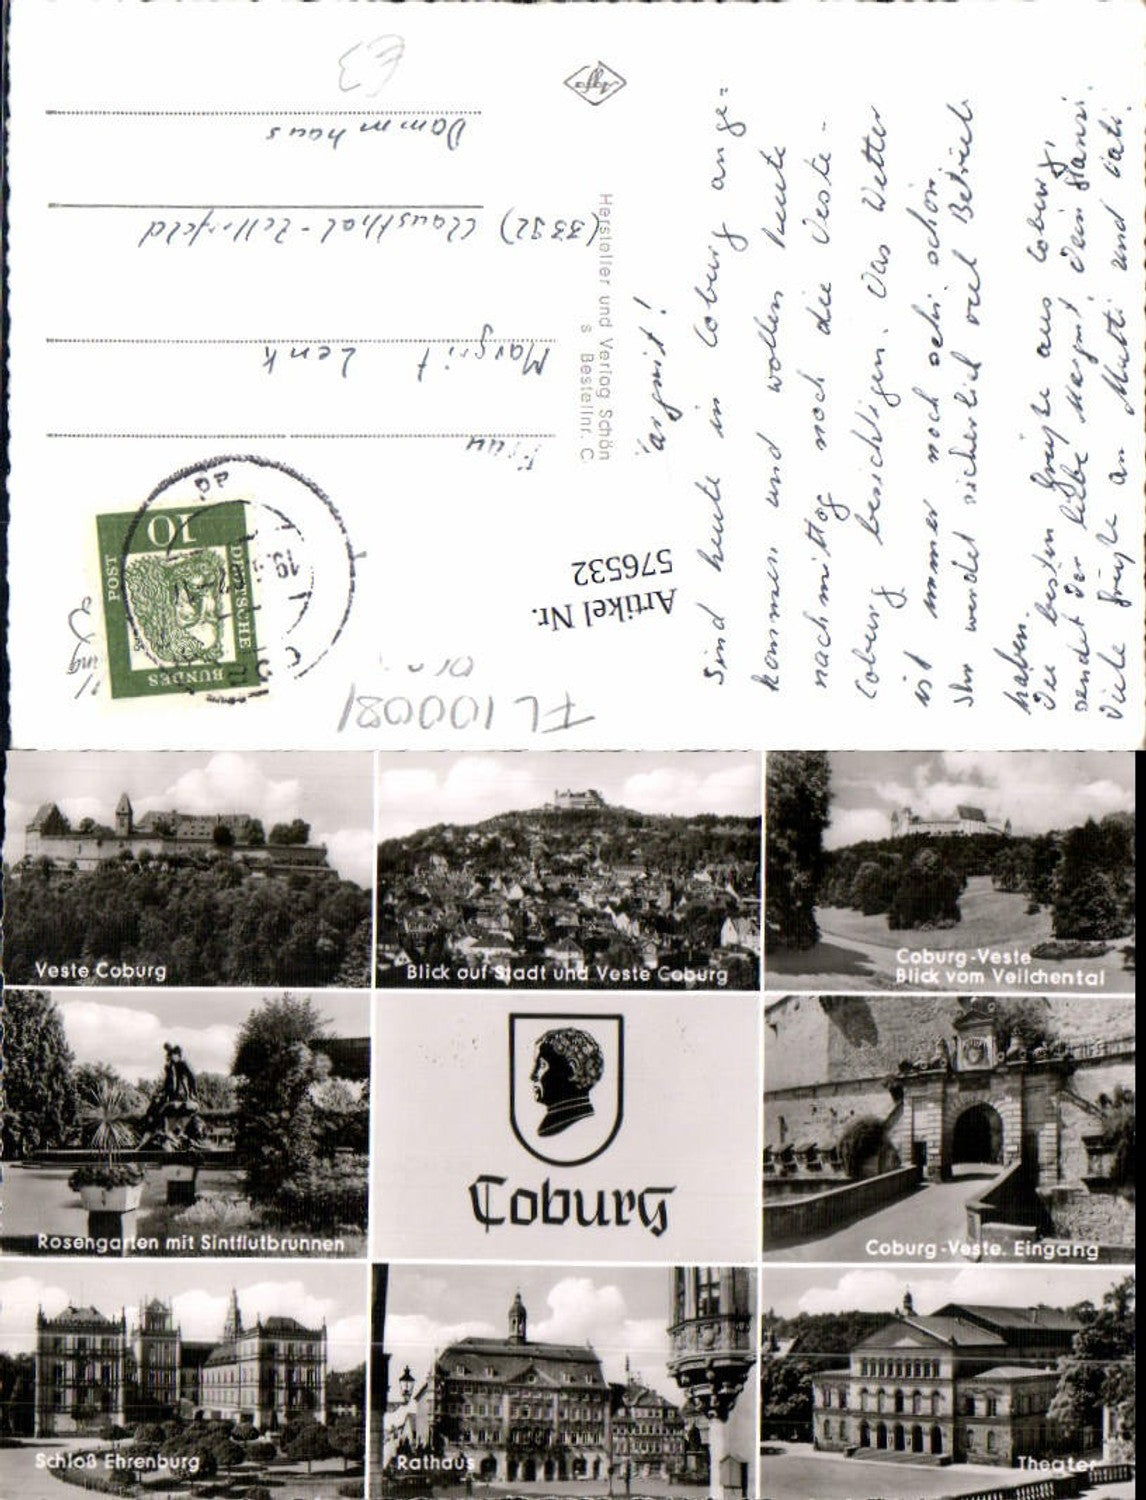 €3
Dammhaus
(3392) Clausthal-Zellerfeld
Margrit Lenk
Frau
Agfa
Hersteller und Verlag Schön
s Bestellnr. C
DEUTSCHE
BUNDES
POST
10
Artikel Nr.
576532
FL100081
argrit!
Sind heute in Coburg ange=
kommen und wollen heute
nachmittag noch die Veste-
Coburg besichtigen. Das Wetter
ist immer noch sehr schön.
Ihr werdet sicherlich viel Betrieb
haben.
Die besten Grüße aus Coburg,
sendet dir liebe Margrit Dein
Viele Grüße an Mutti und Vati.
Veste Coburg
Blick auf Stadt und Veste Coburg
Coburg-Veste
Blick vom Veilchental
Rosengarten mit Sintflutbrunnen
Coburg
Coburg-Veste. Eingang
Schloß Ehrenburg
Rathaus
Theater